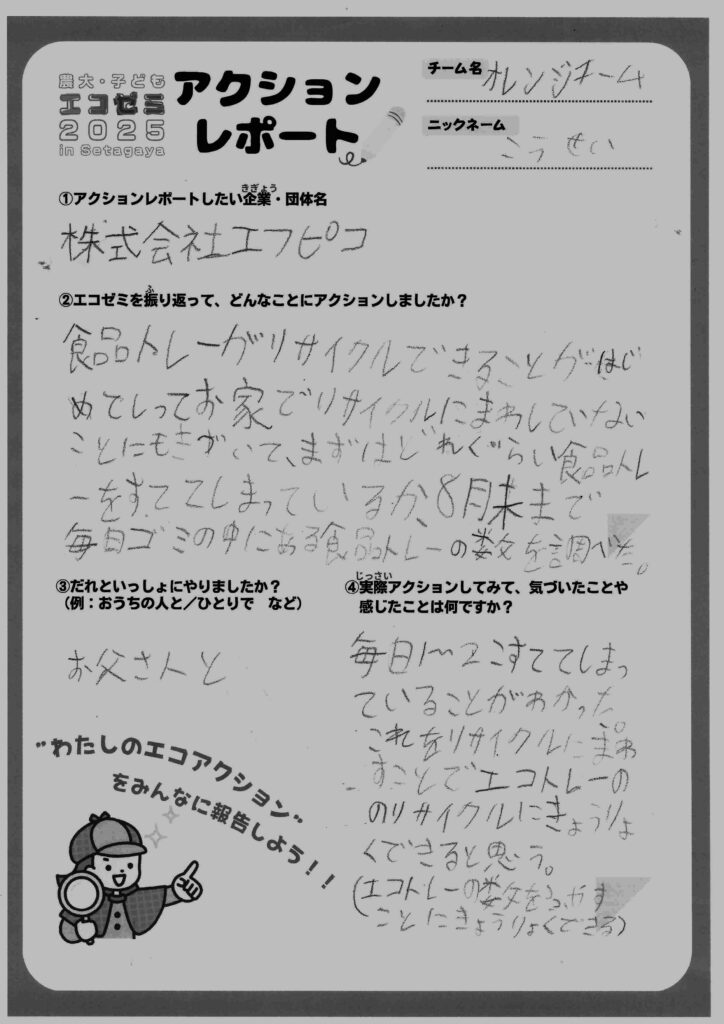 農大・子ども
エコゼミ
2025
in Setagaya
アクション
レポート
チーム名 オレンジチーム
ニックネーム こうせい
①アクションレポートしたい企業・団体名
きぎょう
株式会社エフピコ
②エコゼミを振り返って、どんなことにアクションしましたか？
ふ
食品トレーがリサイクルできることがはじ
めてしってお家でリサイクルにまわしていない
ことにもきづいて、まずはどれぐらい食品トレ
ーをすててしまっているか、8月末まで
毎日ゴミの中にある食品トレーの数を調べた。
③だれといっしょにやりましたか？
（例：おうちの人と／ひとりで　など）
お父さんと
④実際アクションしてみて、気づいたことや
じっさい
感じたことは何ですか？
毎日1〜2こすててしまっ
ていることがわかった
これをリサイクルにまわ
すことでエコトレーの
のリサイクルにきょうりょ
くできると思う。
(エコトレーの数をふやす
ことにきょうりょくできる)
"わたしのエコアクション"
をみんなに報告しよう！！